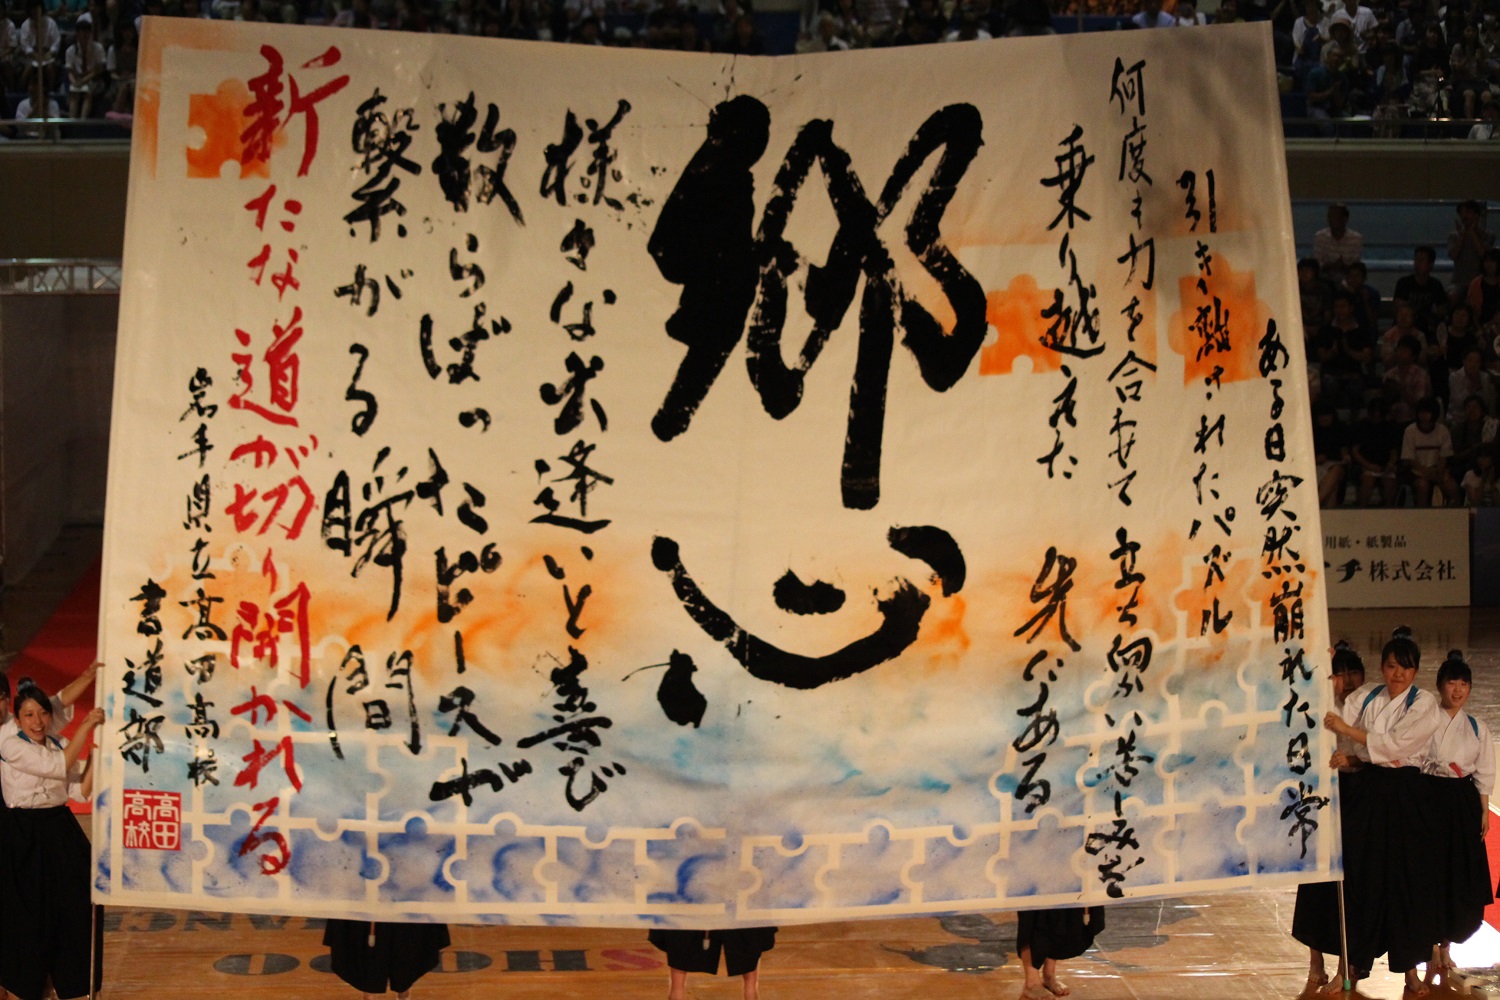 ある日突然崩れた日常
引き離されたパズル
何度も力を合わせて立ち向かい苦しみを
乗り越えた先にある
郷心
様々な出逢いと喜び
散らばったピースが
繋がる瞬間
新たな道が切り開かれる
岩手県立高田高校
書道部
高田高校
用紙・紙製品
チ株式会社